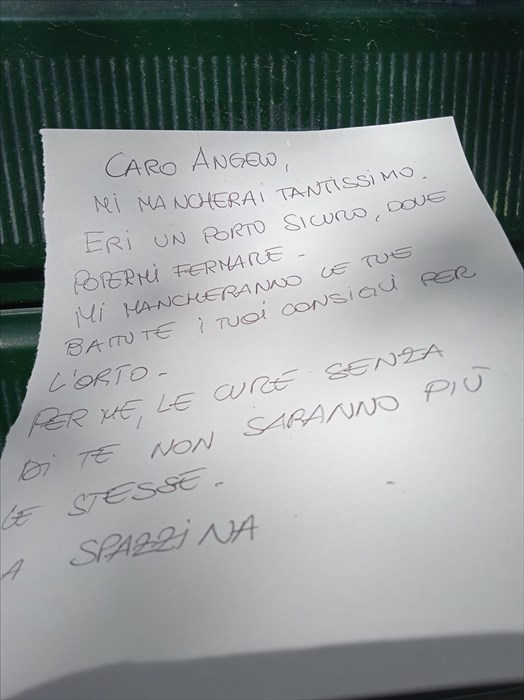 CARO ANGELO,
MI MANCHERAI TANTISSIMO.
ERI UN PORTO SICURO, DOVE
POTERMI FERMARE -
MI MANCHERANNO LE TUE
BATTUTE I TUOI CONSIGLI PER
L'ORTO -
PER ME, LE CURE SENZA
DI TE NON SARANNO PIÙ
LE STESSE.
A SPAZZINA